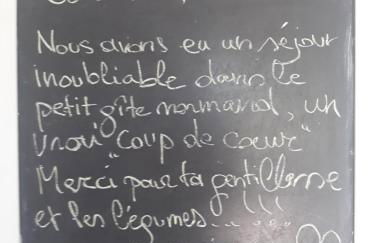 Nous avons eu un séjour
inoubliable dans le
petit gîte normand, un
vrai "Coup de coeur"
Merci pour ta gentillesse
et les légumes...... !!!